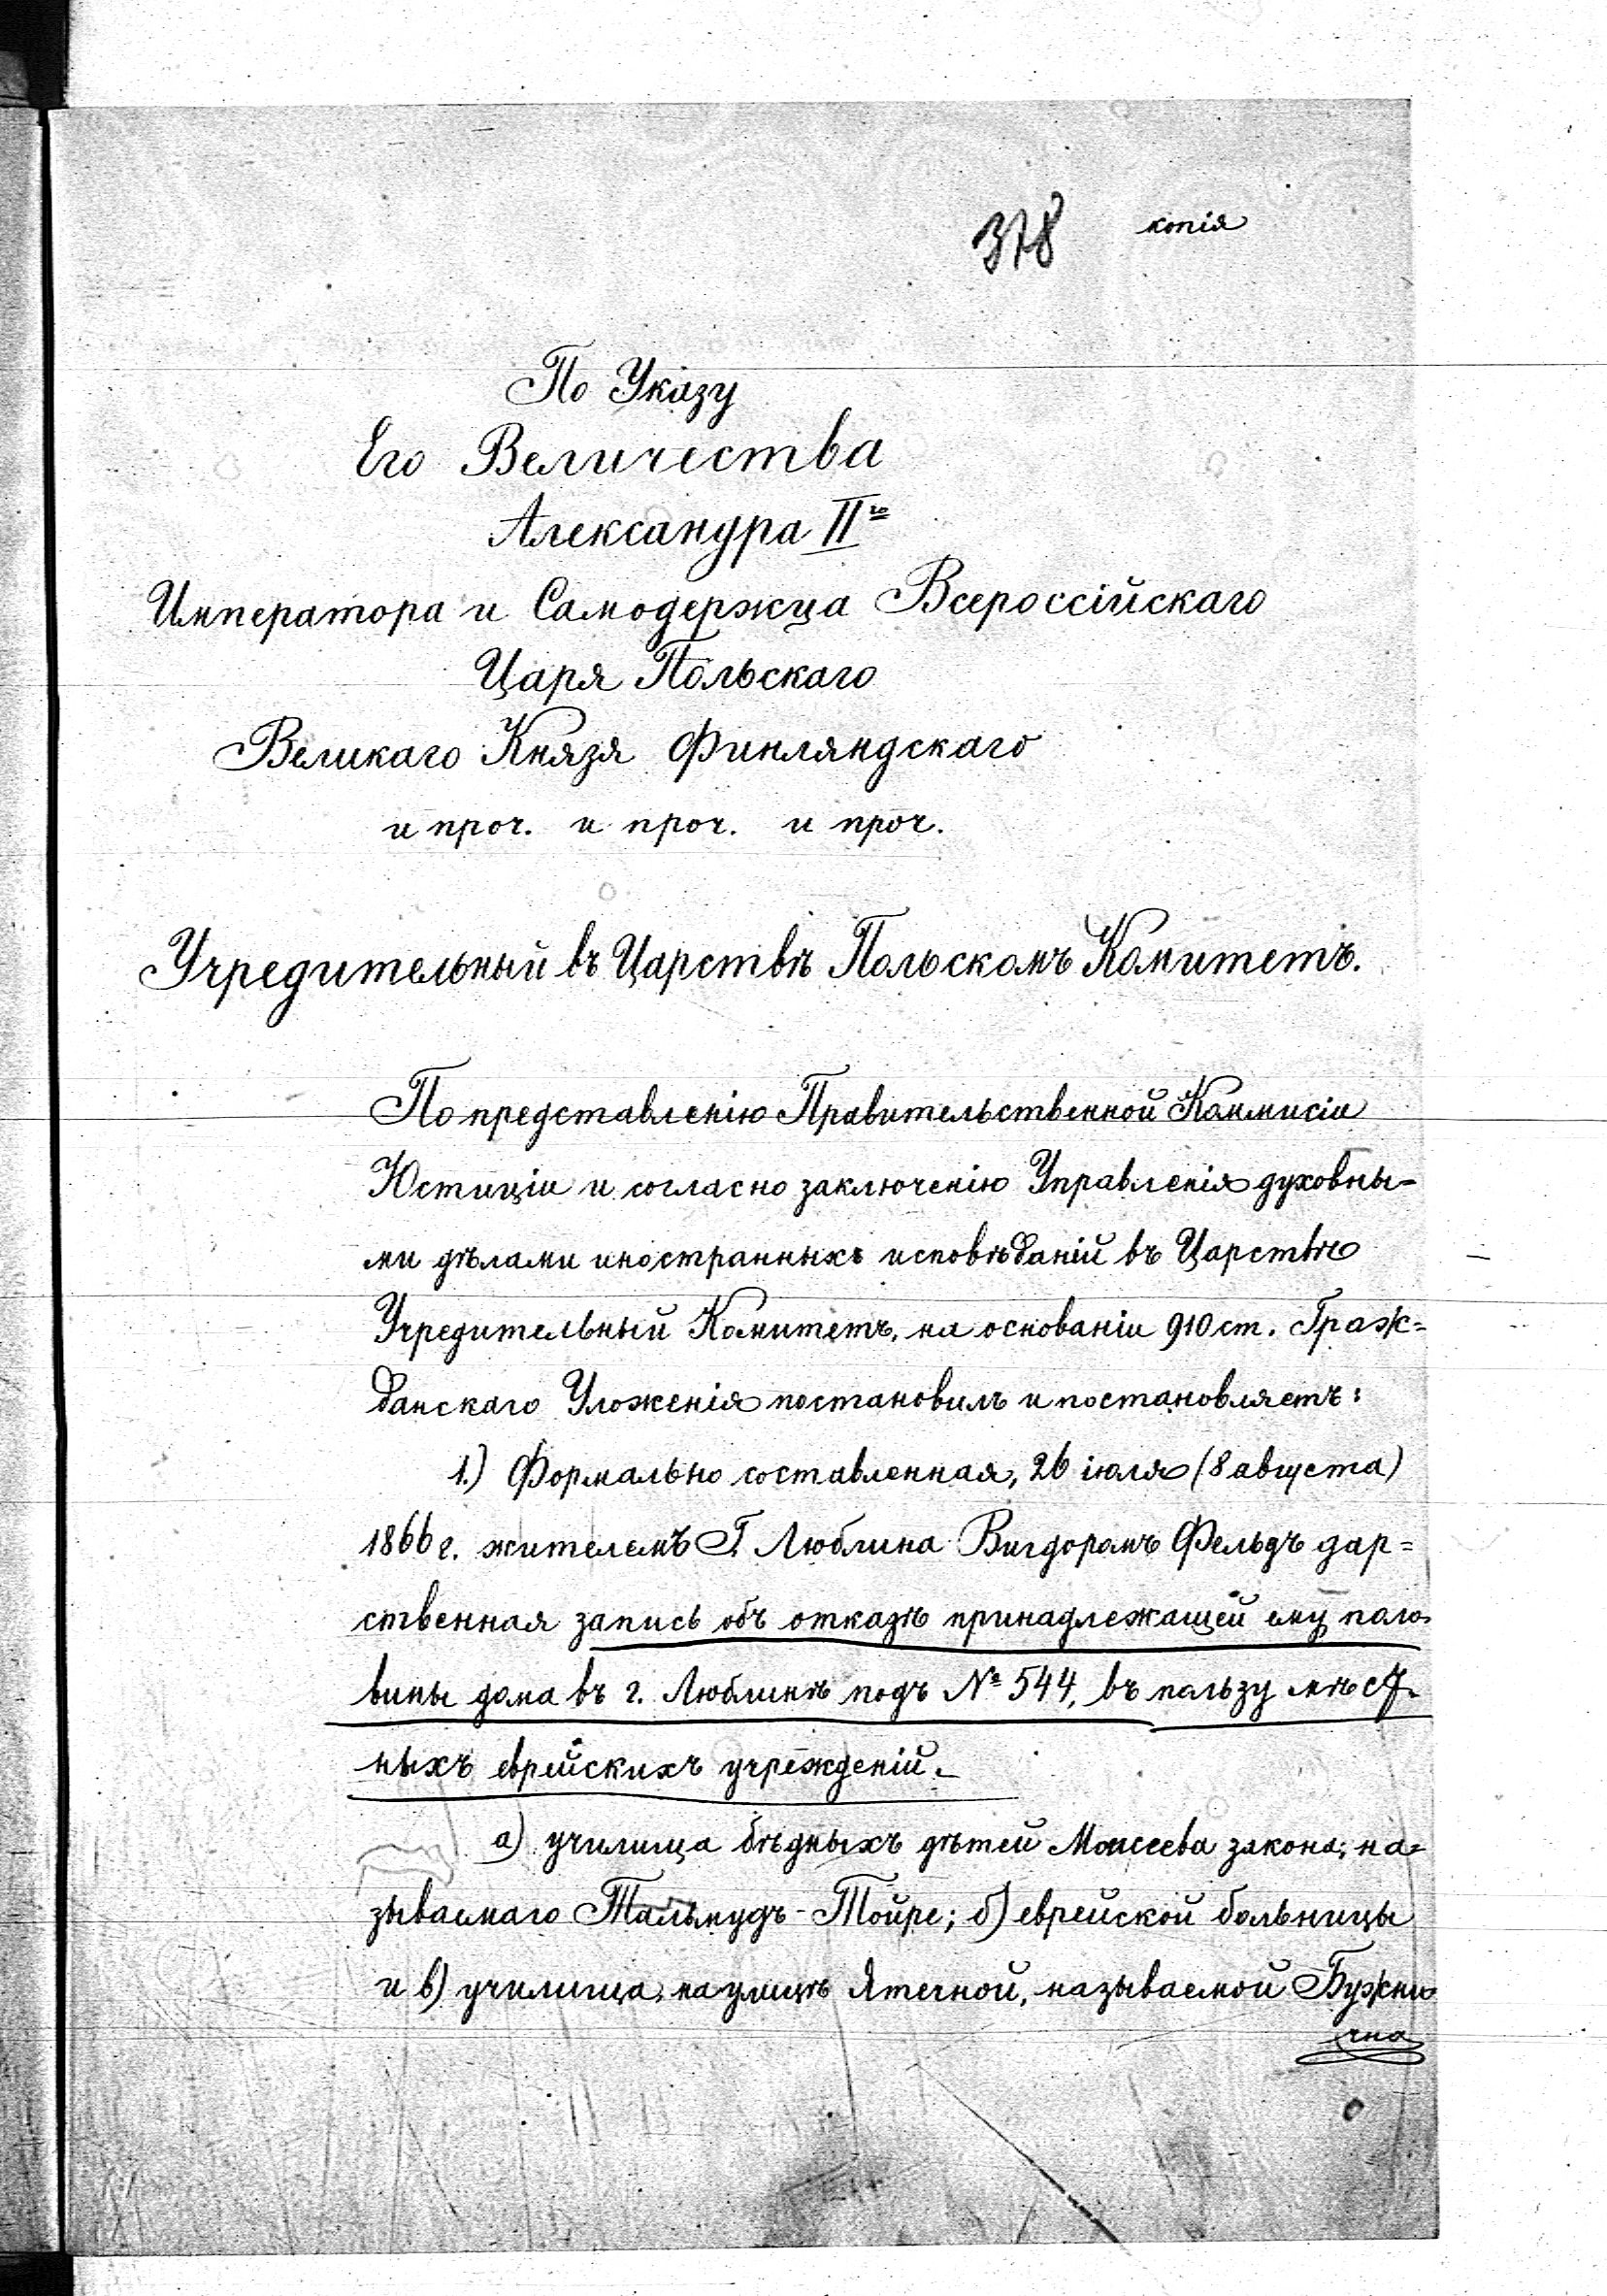 378 копія
По Указу
Его Величества
Александра II го
Императора и Самодержца Всероссійскаго
Царя Польскаго
Великаго Князя Финляндскаго
и проч. и проч. и проч.
Учредительный въ Царствѣ Польскомъ Комитетъ.
По представленію Правительственной Коммисіи
Юстиціи и согласно заключенію Управленія духовны=
ми дѣлами иностранныхъ исповѣданій въ Царствѣ
Учредительный Комитетъ, на основаніи 910 ст. Граж=
данскаго Уложенія постановилъ и постановляетъ:
1.) Формально составленная, 26 іюля (8 августа)
1866 г. жителемъ Г. Люблина Вигдоромъ Фельдъ дар=
ственная запись объ отказѣ принадлежащей ему поло-
вины дома въ г. Люблинѣ подъ № 544, въ пользу мѣст-
ныхъ еврейскихъ учрежденій.
а) училища бѣдныхъ дѣтей Моисеева закона, на=
зываемаго Талмудъ-Тойре; б) еврейской больницы
и в) училища, на улицѣ Ятечной, называемой Бужни
чна